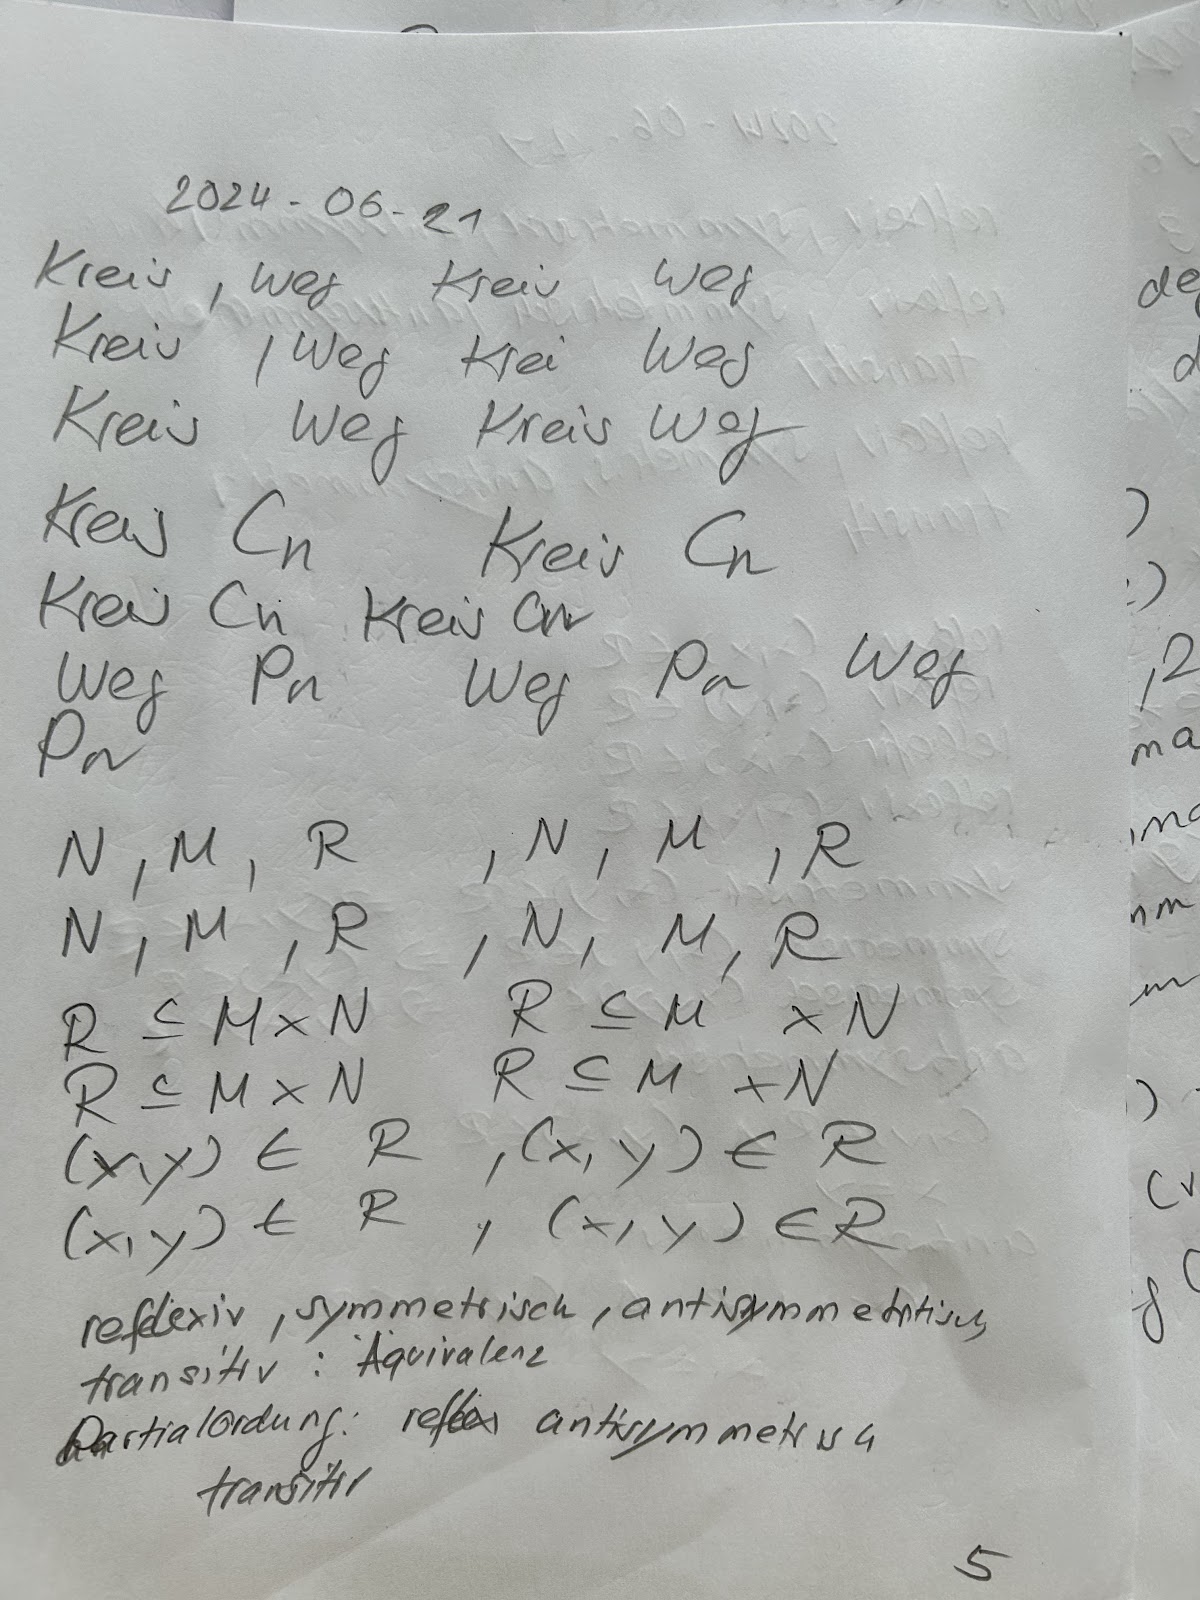 2024-06-21
Kreis, Weg Kreis Weg
Kreis, Weg Krei Weg
Kreis Weg Kreis Weg
Kreis Cn Kreis Cn
Kreis Cn Kreis Cn
Weg Pn Weg Pn Weg
Pn
N, M, R , N, M, R
N, M, R , N, M, R
R ⊆ M x N R ⊆ M x N
R ⊆ M x N R ⊆ M x N
(x,y) ∈ R , (x,y) ∈ R
(x,y) ∈ R , (x,y) ∈ R
reflexiv, symmetrisch, antisymmetrtisch
transitiv : Äquivalenz
PartialOrdung: reflex antisymmetrisch
transitiv
5